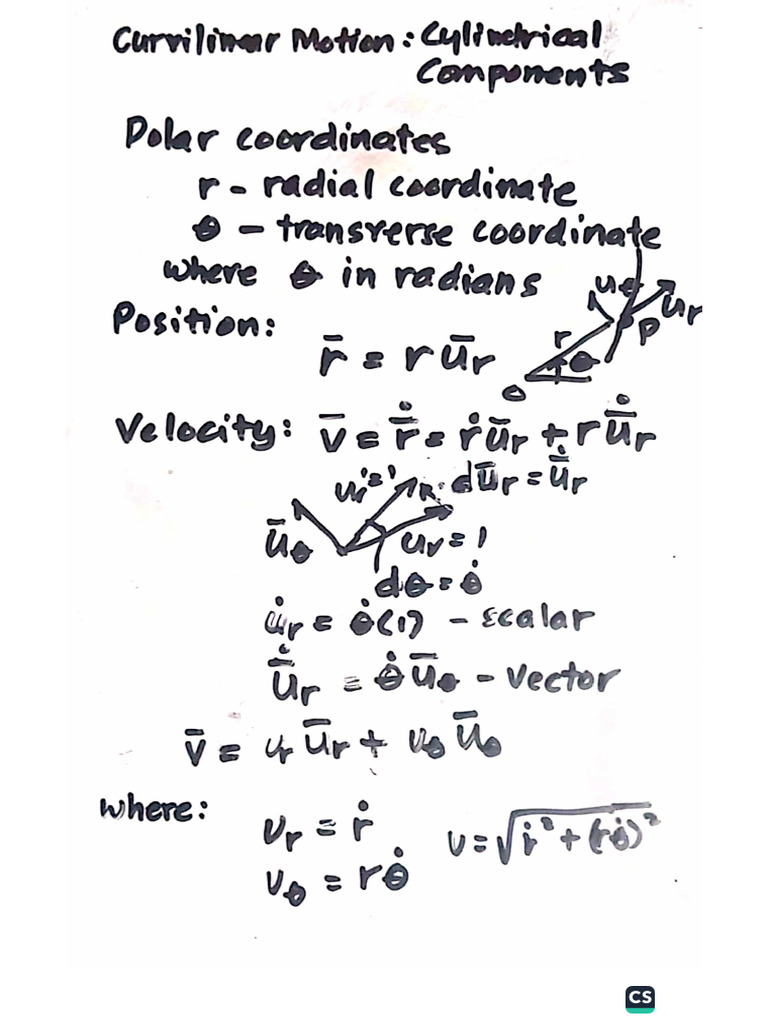 Curvilinear Motion: Cylindrical
Components
Polar coordinates
r - radial coordinate
θ - transverse coordinate
where θ in radians
uθ
ur
r
θ
P
O
Position:
r̄ = r ūr
Velocity: v̄ = r̄̇ = ṙūr + r ū̇r
ur'=1'
dūr = ū̇r
ūθ
ur = 1
dθ = θ̇
u̇r = θ̇(1) - scalar
ū̇r = θ̇ ūθ - vector
v̄ = vr ūr + vθ ūθ
where:
vr = ṙ
v = √ṙ² + (rθ̇)²
vθ = rθ̇
CS